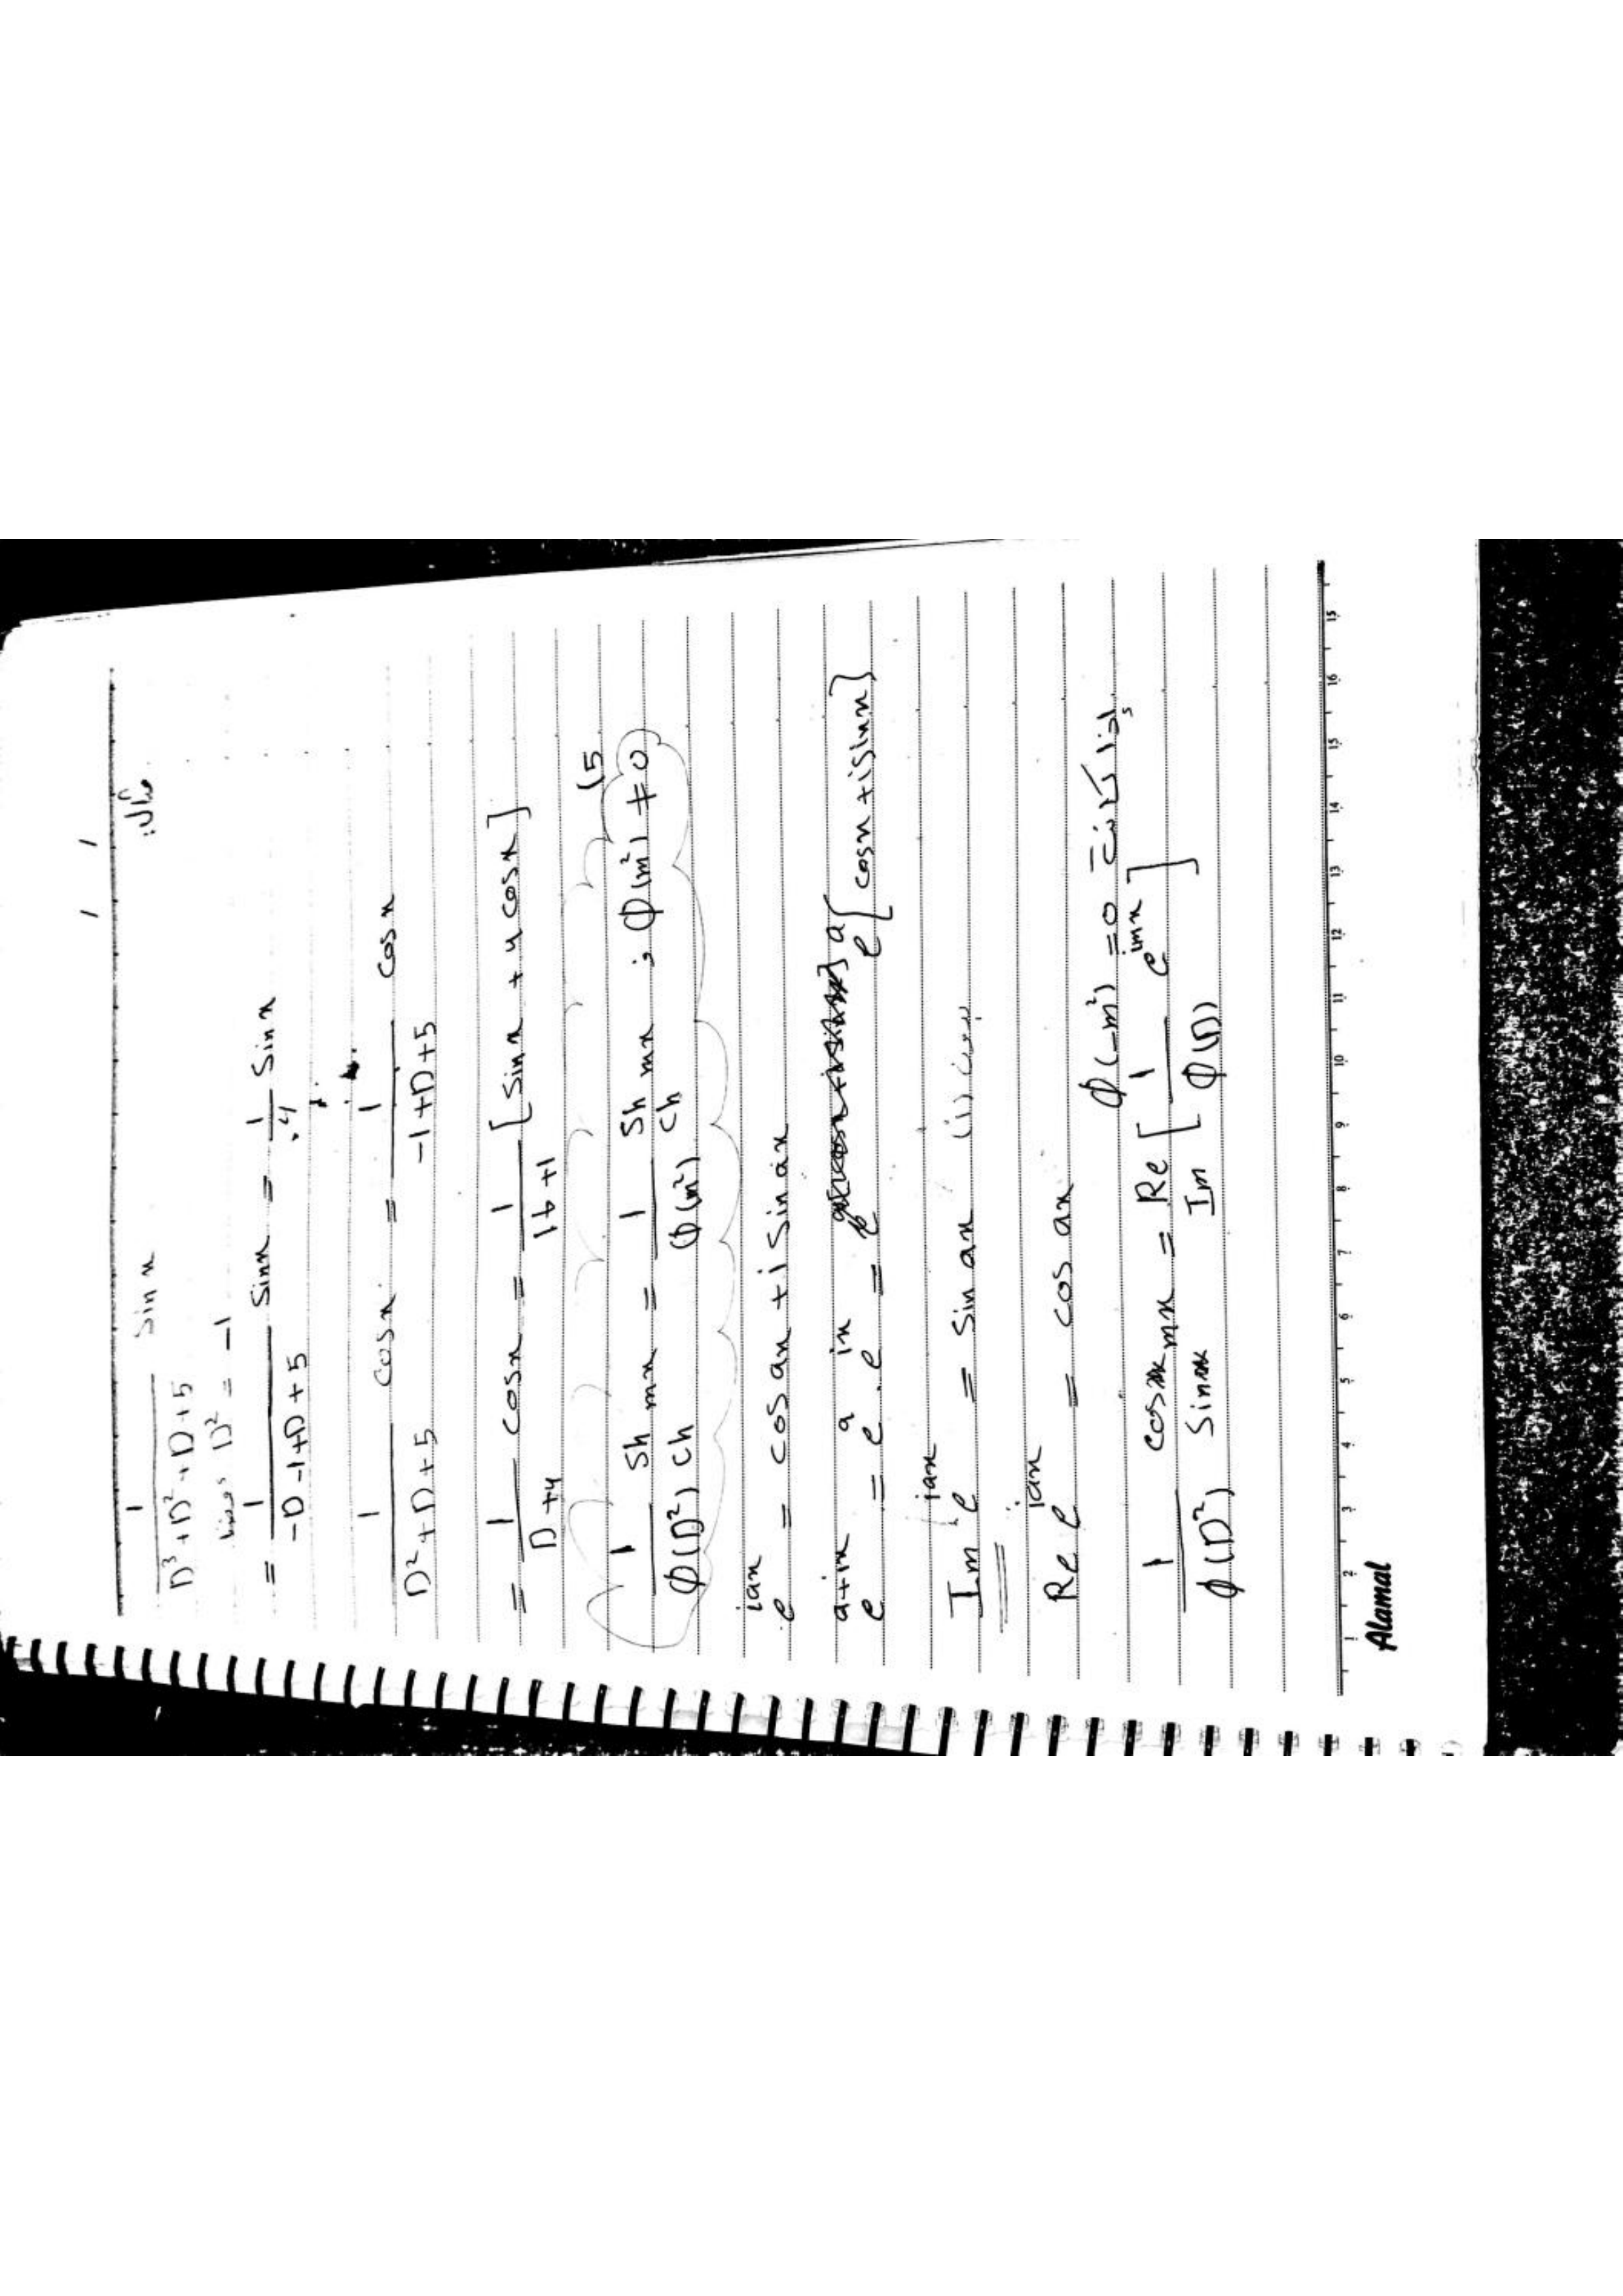 مثال:
1/(D³+D²+D+5) Sin x
D² = -1
= 1/(-D-1+D+5) Sin x = 1/4 Sin x
1/(D²+D+5) cos x = 1/(-1+D+5) cos x
= 1/(D+4) cos x = 1/(16+1) [Sin x + 4 cos x]
(5
1/φ(D²) Sh ch mx = 1/φ(m²) Sh ch mx ; φ(m²) ≠ 0
e^{iax} = cos ax + i Sin ax
e^{a+ix} = e^a . e^{ix} = e^a [cos x + i sin x]
Im e^{iax} = Sin ax
Re e^{iax} = cos ax
إذا كانت φ(-m²) = 0
1/φ(D²) cos Sin mx = Re Im [1/φ(D) e^{imx}]
1 2 3 4 5 6 7 8 9 10 11 12 13 14 15 16 15
Alamal